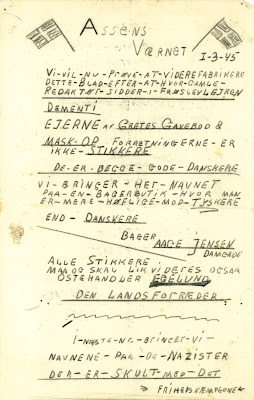 ASSENS
VÆRNET
1-3-45
VI-VIL-NU-PRØVE-AT-VIDEREFABRIKERE
DETTE-BLAD-EFTER-AT-HVOR-GAMLE-
REDAKTØR-SIDDER-I-FRØSLEVLEJREN
DEMENTI
EJERNE AF GRETES GAVEBOD &
MASK-OP FORRETNINGERNE-ER
IKKE-STIKKERE
DE-ER-BEGGE-GODE-DANSKERE
VI-BRINGER-HER-NAVNET
PAA-EN-BAGERBUTIK-HVOR MAN
ER-MERE-HØFLIGE-MOD-TYSKERE
END-DANSKERE
BAGER
AAGE JENSEN
DAMGADE
ALLE STIKKERE
MAA OG SKAL LIKVIDERES OGSAA
OSTEHANDLER EGELUND
DEN LANDSFORRÆDER
I-NÆSTE-NR.-BRINGER-VI-
NAVNENE-PAA-DE-NAZISTER
DER-ER-SKULT-MED-DET
FRIHEDSKÆMPERNE